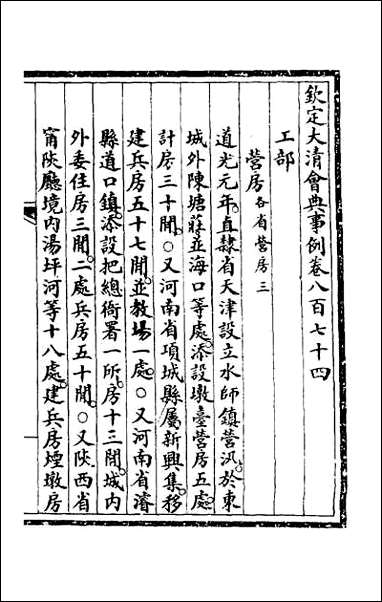 欽定大清會典事例卷八百七十四
工部
營房各省營房三
道光元年直隸省天津設立水師鎮營汛於東
城外陳塘莊並海口等處添設墩臺營房五處
計房三十閒○又河南省項城縣屬新興集移
建兵房五十七閒並教場一處○又河南省濬
縣道口鎮添設把總衙署一所房十三閒城內
外委住房三閒二處兵房五十閒○又陝西省
甯陜廳境內湯坪河等十八處建兵房煙墩房